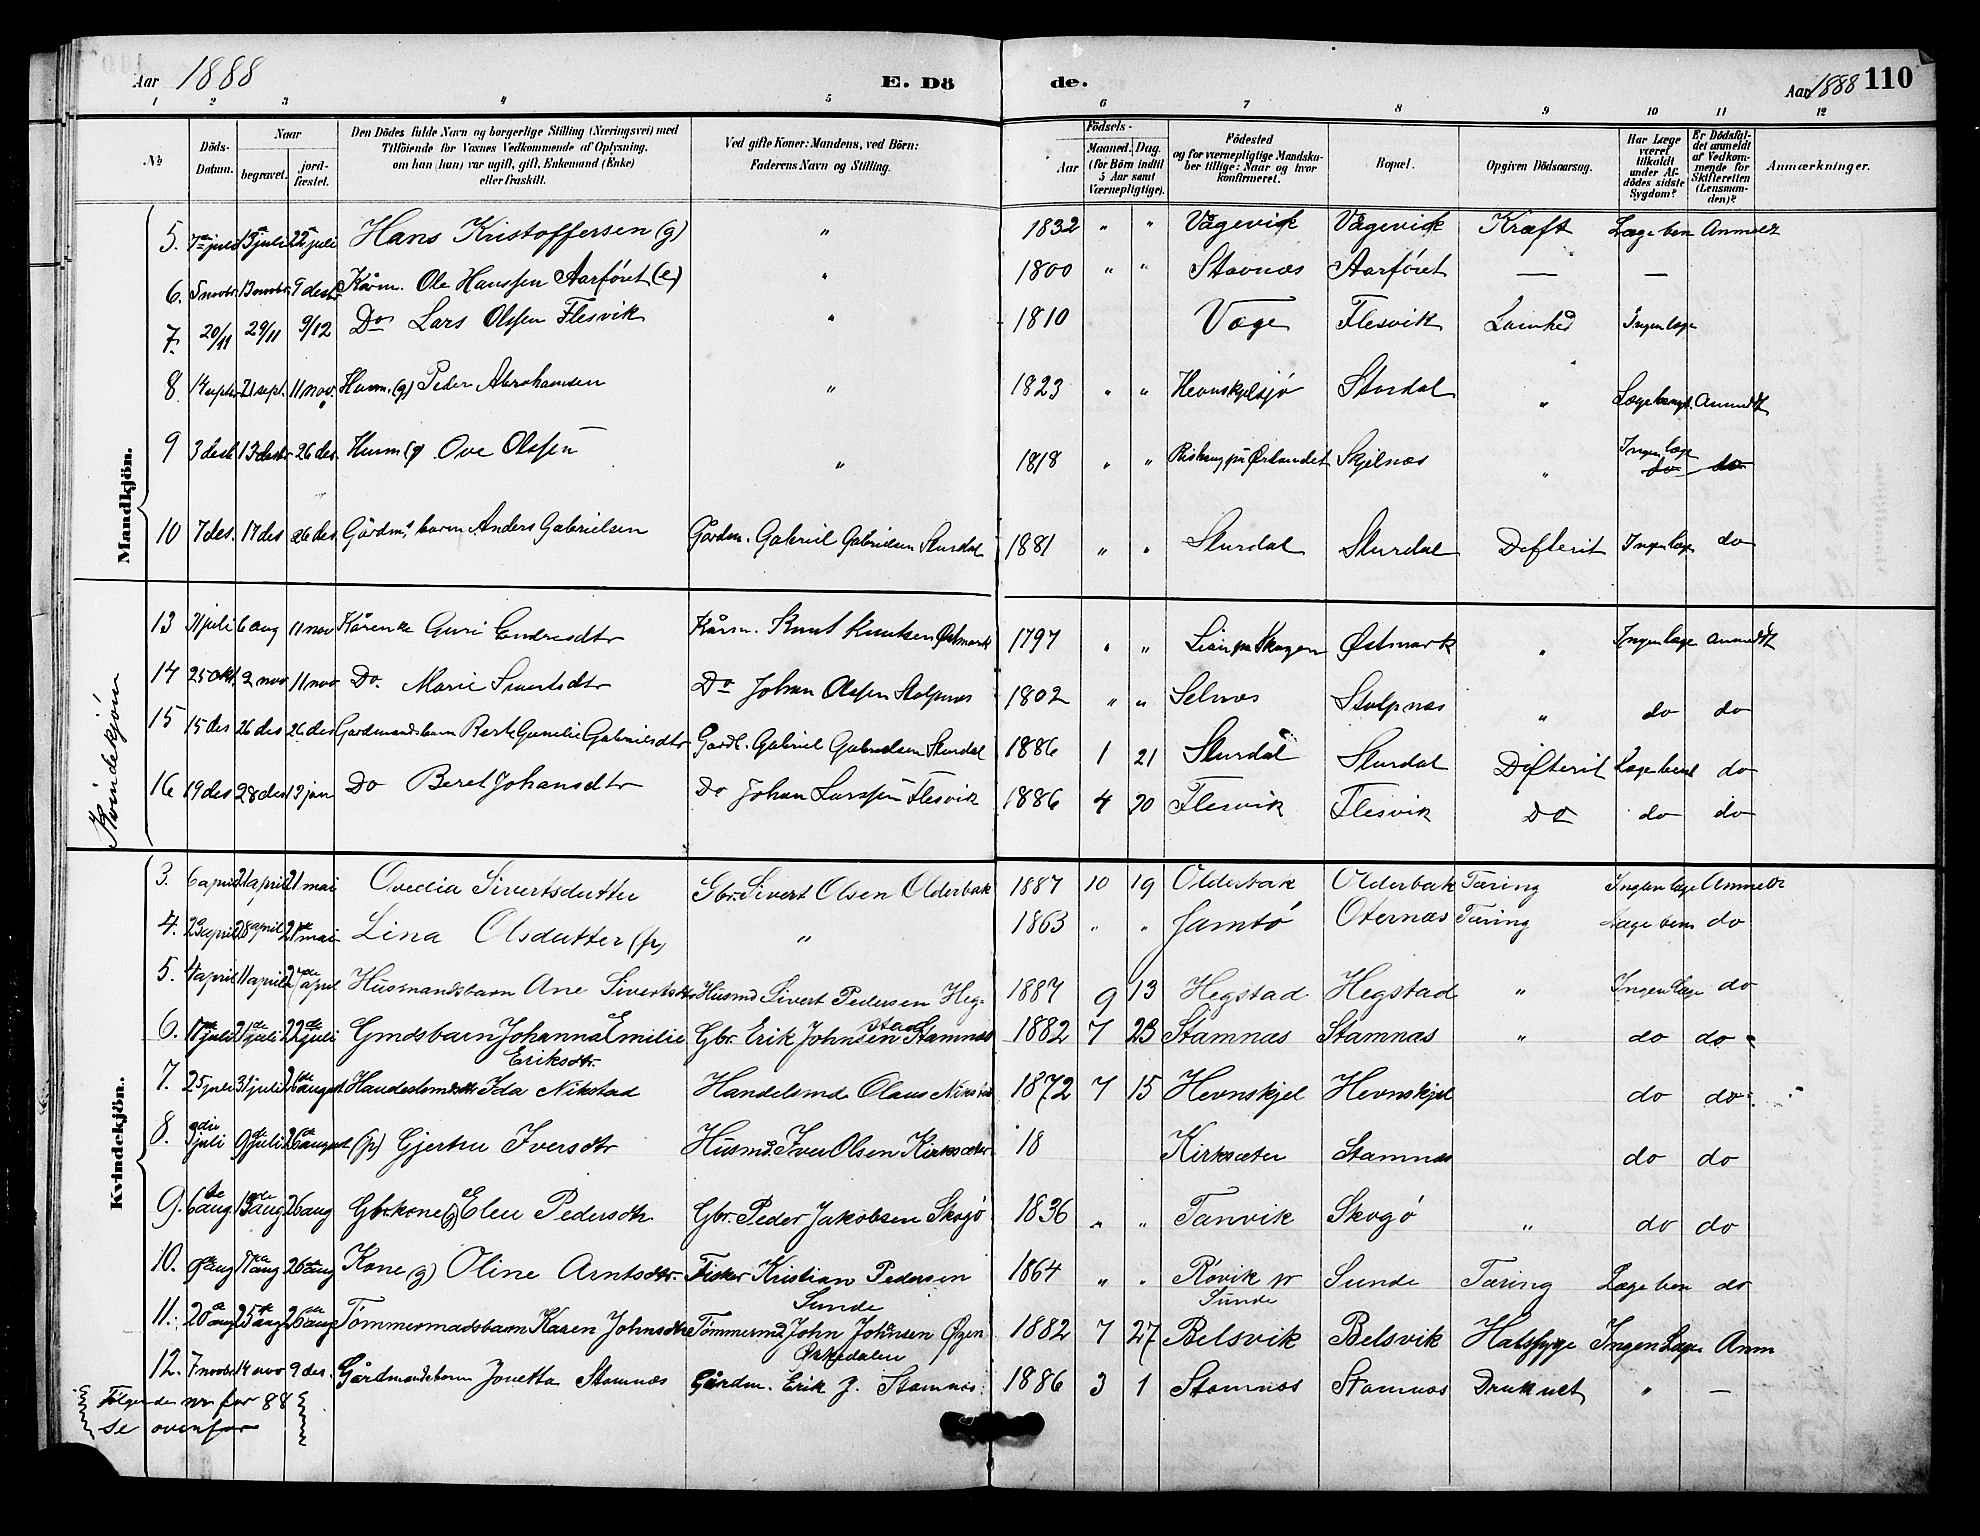 Aar 1888 E. Dö de. Aar 1888 110
1 2 3 4 5 6 7 8 9 10 11 12
No Döds-Datum. Naar begravet. jord-fæstet. Den Dödes fulde Navn og borgerlige Stilling (Næringsvei) med Tilföiende for Voxnes Vedkommende af Oplysning, om han (hun) var ugift, gift, Enkemand (Enke) eller fraskilt. Ved gifte Koner: Mandens, ved Börn: Faderens Navn og Stilling. Födsels- Aar Maaned. Dag. (for Börn indtil 5 Aar samt Værnepligtige). Födested og for værnepligtige Mandskaber tillige: Naar og hvor konfirmeret. Bopæl. Opgiven Dödsaarsag. Har Læge været tilkaldt under Afdödes sidste Sygdom? Er Dödsfaldet anmeldt af Vedkommende for Skifteretten (Lensmanden)? Anmærkninger.
Mandkjön.
5. 7de juli 13 juli 22 juli Hans Kristoffersen (g) " 1832 " " Vågevick Vågevick Kræft Læge ben Anmeldt
6. 5 novbr. 13 novbr. 9 desbr. Kårm. Ole Hanssen Aarföret (e) " 1800 " " Stavnæs Aarföret — —
7. 20/11 29/11 9/12 Do Lars Olssen Flesvik " 1810 Vage Flesvik Lamhed Ingen læge
8. 14 septbr. 21 sept. 11 nov. Husm. (g) Peder Abrahamsen " 1823 " " Hevnskjelsjø Stordal " Læge benyt. Anmeldt
9 3 desb 13 desbr. 26 des. Husm (g) Ove Olssen " 1818 " " på Ørlandet Skjelnæs " Ingen læge do do
10 7 des. 17 des 26 des Gårdm.s barn Anders Gabrielsen Gårdm. Gabriel Gabrielsen Slurdal 1881 " " Slurdal Slurdal Difterit Ingen læge do
Kvindekjön
13 31 juli 6 aug 11 nov Kårenke Guri Endresdtr Kårm. Knut Knutsen Østmark 1797 " " Lian på Skagen Østmark " Ingen læge anmeldt
14 25 okt. 2 nov 11 nov Do. Marie Sivertsdtr Do Johan Olssen Stolpnæs 1802 " " Selnæs Stolpnæs " do do
15 15 des 26 des 26 des Gårdmandsbarn Gabrielsdtr Gårdb. Gabriel Gabrielsen Slurdal 1886 1 21 Slurdal Slurdal Difterit Læge benyt do
16 19 des 28 des 13 jan Do Beret Johansdtr Do Johan Larssen Flesvik 1886 4 20 Flesvik Flesvik Do do do
Kvindekjön.
3. 6 april 21 april 21 mai Ovedia Sivertsdatter Gbr. Sivert Olsen Olderbak 1887 10 19 Olderbak Olderbak Tæring Ingen læge Anmeldt
4. 23 april 28 april 21de mai Lina Olsdatter (p) " 1863 " " Jamtö Oternæs Tæring Læge ben do
5. 4 april 11 april 27de april Husmandsbarn Ane Sivertsdtr Husmd Sivert Pedersen Heg- 1887 9 13 Hegstad Hegstad " Ingen læge do
stad
6. 17de juli 21de juli 22de juli Gmdsbarn Johanna Emilie Gbr. Erik Johnsen Stamnæs 1882 7 23 Stamnæs Stamnæs " do do
Eriksdtr.
7. 25 juli 31 juli 26de august Handelsmds dtr Ida Nikstad Handelsmd. Olaus Nikstad 1872 7 15 Hevnskjel Hevnskjel do do
8. 3die juli 9de juli 26de august (p) Gjertru Iversdtr Husmd. Iver Olsen Kirksæter 18 Kirksæter Stamnæs do do
9. 6te aug 13de aug 26 aug Gbrkone (g) Elen Pedersdtr Gbr. Peder Jakobsen Skogö 1836 " " Tanvik Skogö " do do
10. 9de aug 17de aug 26de aug Kone (g) Oline Arntsdtr. Fisker Kristian Pedersen 1864 " " Rövik pr Sunde Tæring Læge ben do
Sunde Sunde
11. 20de aug 25de aug 26de aug Tömmermadsbarn Karen Johnsdtr Tömmermd John Johnsen Øyen 1882 7 27 Belsvik Belsvik Halssyge Ingen Læge Anm
Orkedalen
12. 7 novbr 14 nov 9 des. Gårdmandsbarn Jonetta Stamnæs Gårdm. Erik J. Stamnæs. 1886 3 1 Stamnæs Stamnæs Druknet " —
Følgende nr for 88
se ovenfor